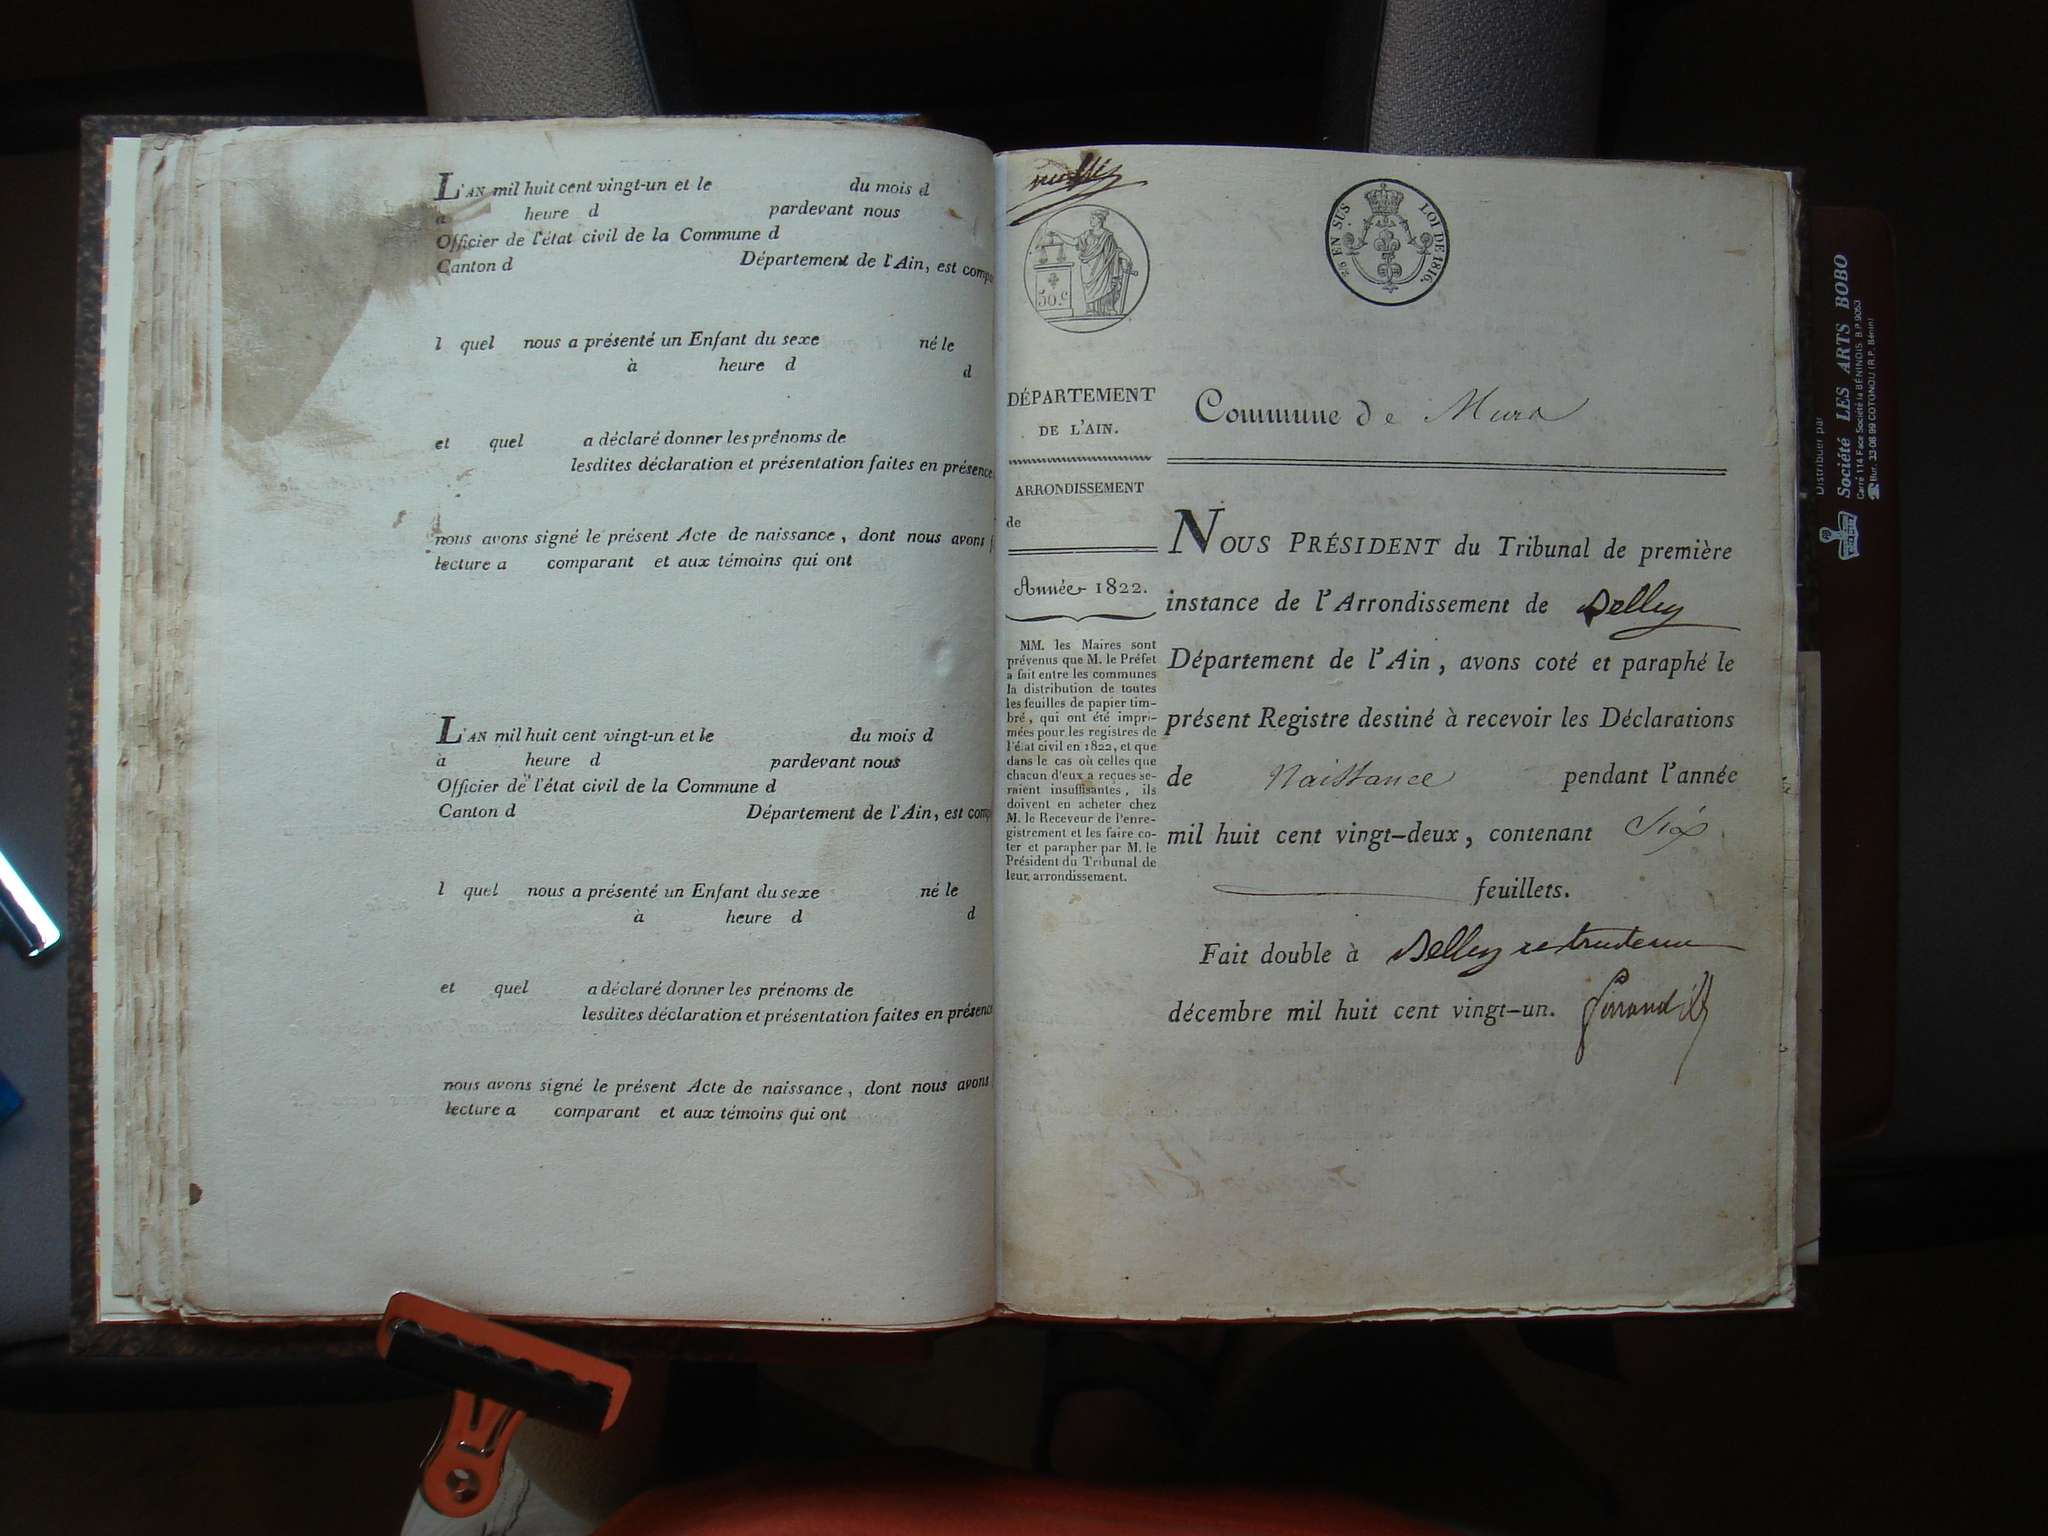 L'AN mil huit cent vingt-un et le du mois d
a heure d pardevant nous
Officier de l'état civil de la Commune d
Canton d Département de l'Ain, est comp
l quel nous a présenté un Enfant du sexe né le
à heure d d
et quel a déclaré donner les prénoms de
lesdites déclaration et présentation faites en présence
nous avons signé le présent Acte de naissance, dont nous avons f
lecture a comparant et aux témoins qui ont
L'AN mil huit cent vingt-un et le du mois d
à heure d pardevant nous
Officier de l'état civil de la Commune d
Canton d Département de l'Ain, est comp
l quel nous a présenté un Enfant du sexe né le
à heure d d
et quel a déclaré donner les prénoms de
lesdites déclaration et présentation faites en présence
nous avons signé le présent Acte de naissance, dont nous avons
lecture a comparant et aux témoins qui ont
50.c
25 EN SUS LOI DE 1816.
DÉPARTEMENT
DE L'AIN.
ARRONDISSEMENT
de
Année 1822.
MM. les Maires sont
prévenus que M. le Préfet
a fait entre les communes
la distribution de toutes
les feuilles de papier tim-
bré, qui ont été impri-
mées pour les registres de
l'état civil en 1822, et que
dans le cas où celles que
chacun d'eux a reçues se-
raient insuffisantes, ils
doivent en acheter chez
M. le Receveur de l'enre-
gistrement et les faire co-
ter et parapher par M. le
Président du Tribunal de
leur arrondissement.
Commune de Murs
NOUS PRÉSIDENT du Tribunal de première
instance de l'Arrondissement de Belley
Département de l'Ain, avons coté et paraphé le
présent Registre destiné à recevoir les Déclarations
de Naissance pendant l'année
mil huit cent vingt-deux, contenant Six
feuillets.
Fait double à Belley
décembre mil huit cent vingt-un.
Distribuer par
Société LES ARTS BOBO
Carré 114 Face Société la BÉNINOIS B.P. 9053
Bur. 33-08 99 COTONOU (R.P. Bénin)